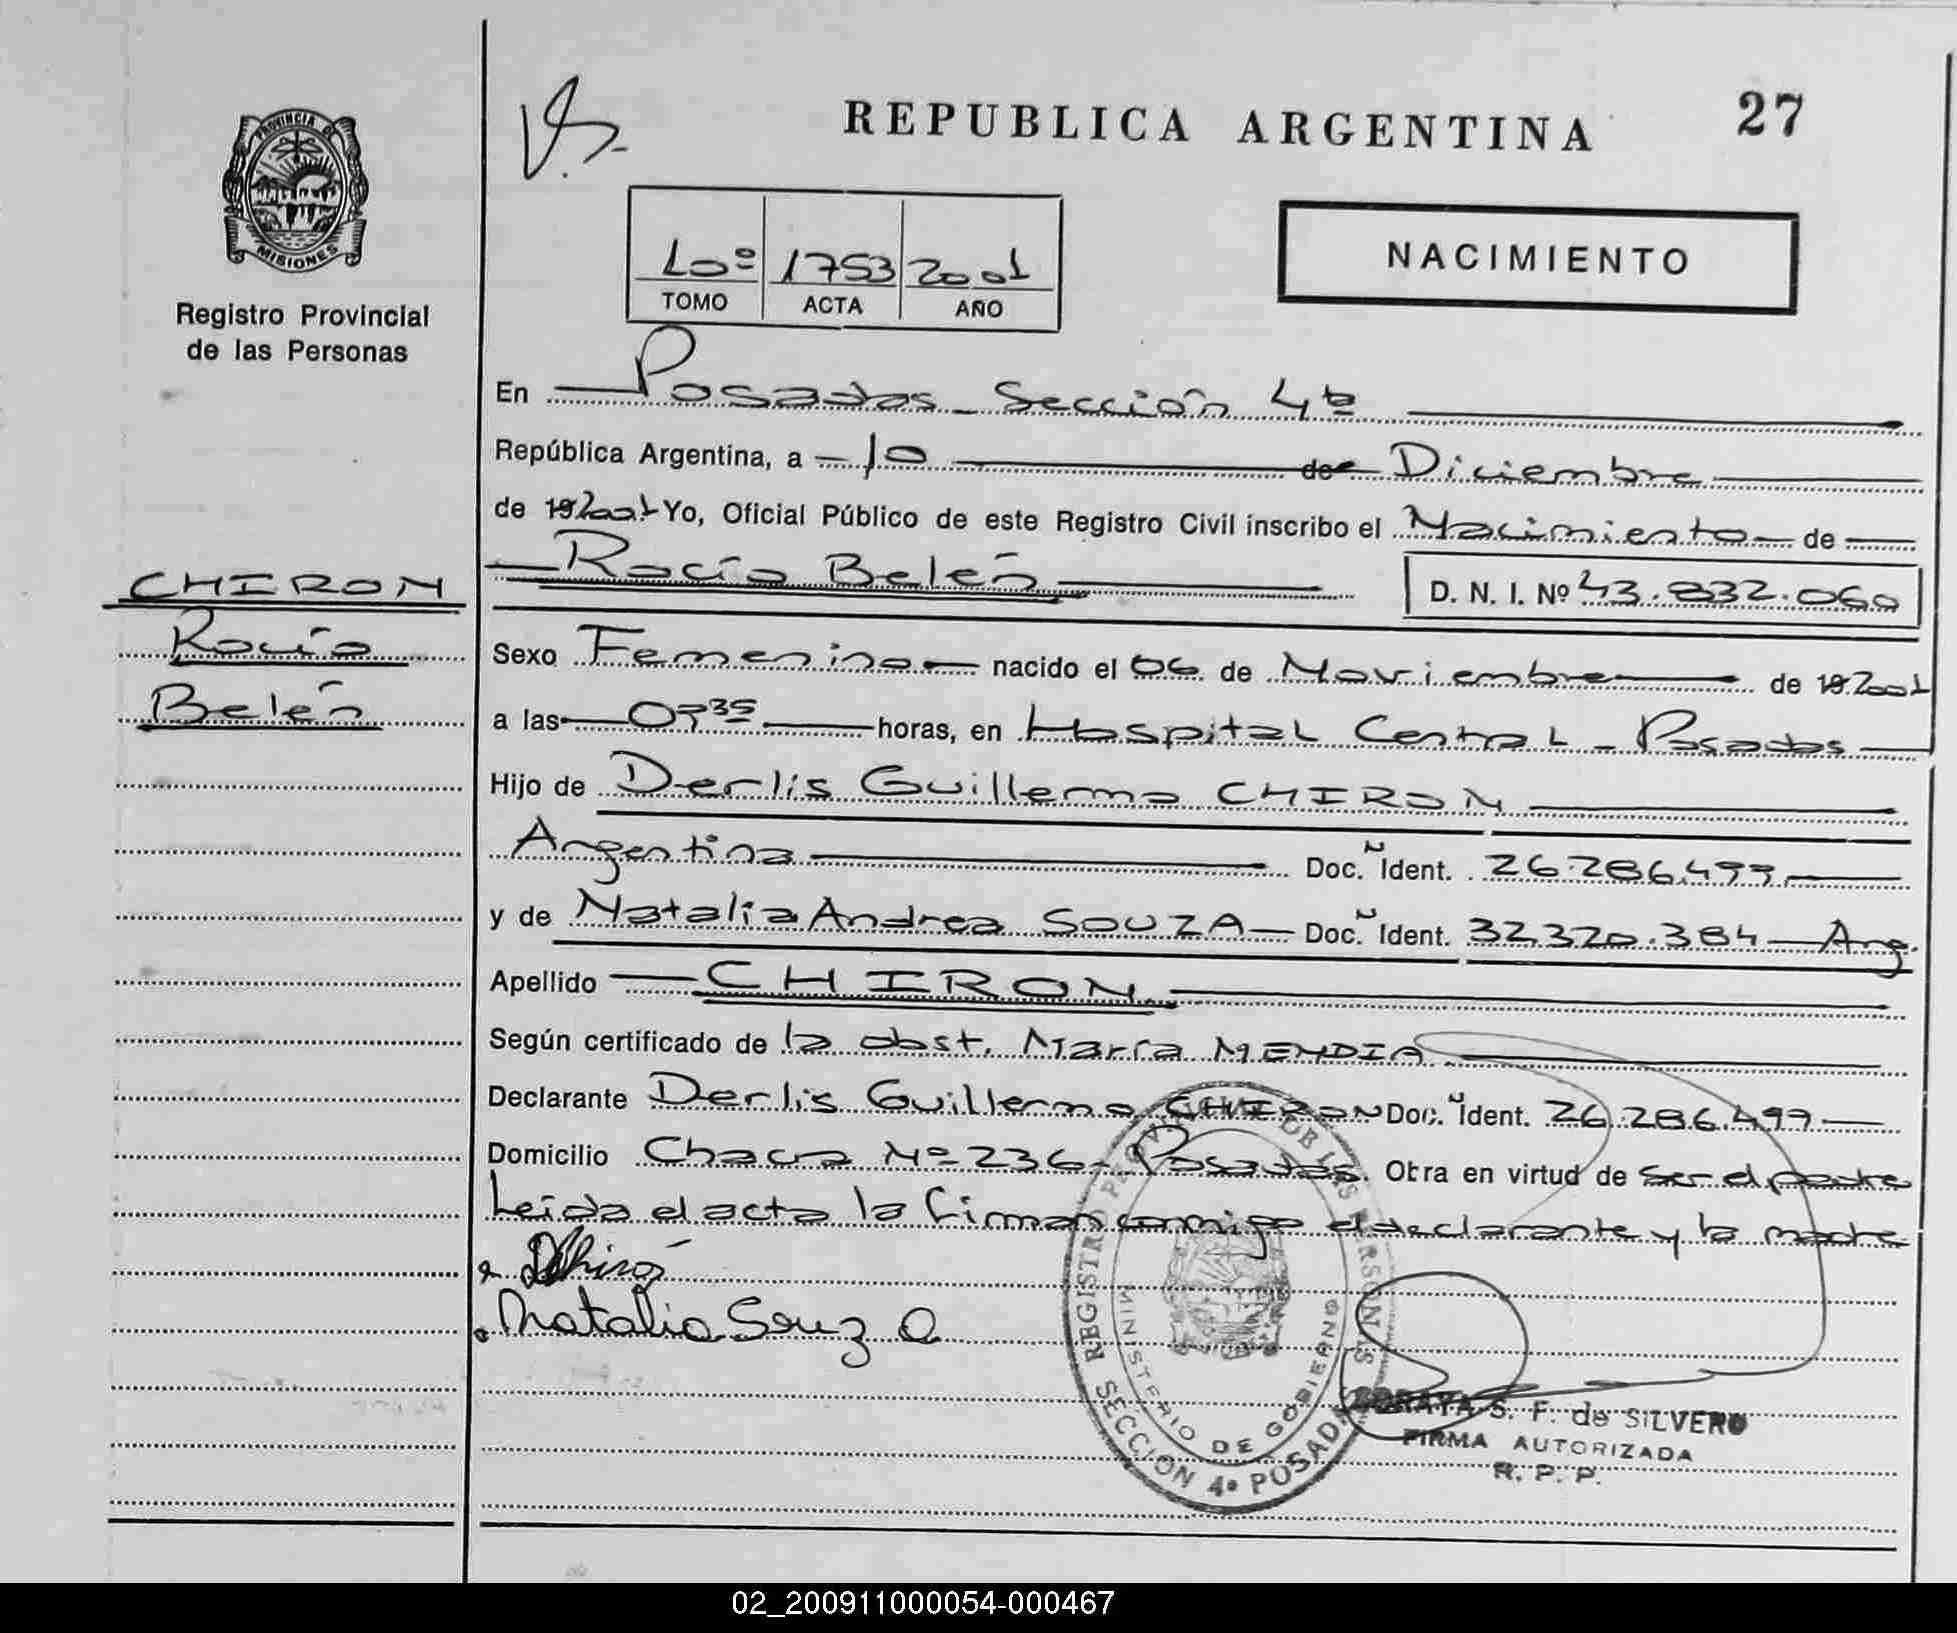 REPUBLICA ARGENTINA
27
PROVINCIA DE
MISIONES
Registro Provincial
de las Personas
10º 1753 2001
TOMO ACTA AÑO
NACIMIENTO
En Posadas - Sección 4ta
República Argentina, a - 10 de Diciembre
de 19 2001 Yo, Oficial Público de este Registro Civil inscribo el Nacimiento de
Rocío Belén
D. N. I. Nº 43.832.060
CHIRON
Rocío
Belén
Sexo Femenino nacido el 06 de Noviembre de 19 2001
a las 07 35 horas, en Hospital Central - Posadas
Hijo de Derlis Guillermo CHIRON
Argentina Doc. N Ident. 26.286.499
y de Natalia Andrea SOUZA Doc. N Ident. 32.320.384 Arg.
Apellido CHIRON
Según certificado de la obst. María MENDIA
Declarante Derlis Guillermo CHIRON Doc. N Ident. 26.286.499
Domicilio Chacra Nº 236 - Posadas. Obra en virtud de ser el padre
Leida el acta la firman conmigo el declarante y la madre
Natalia Souza
REGISTRO PROVINCIAL DE LAS PERSONAS
MINISTERIO DE GOBIERNO
SECCION 4ª POSADAS
S. F. de SILVERO
FIRMA AUTORIZADA
R. P. P.
02_200911000054-000467